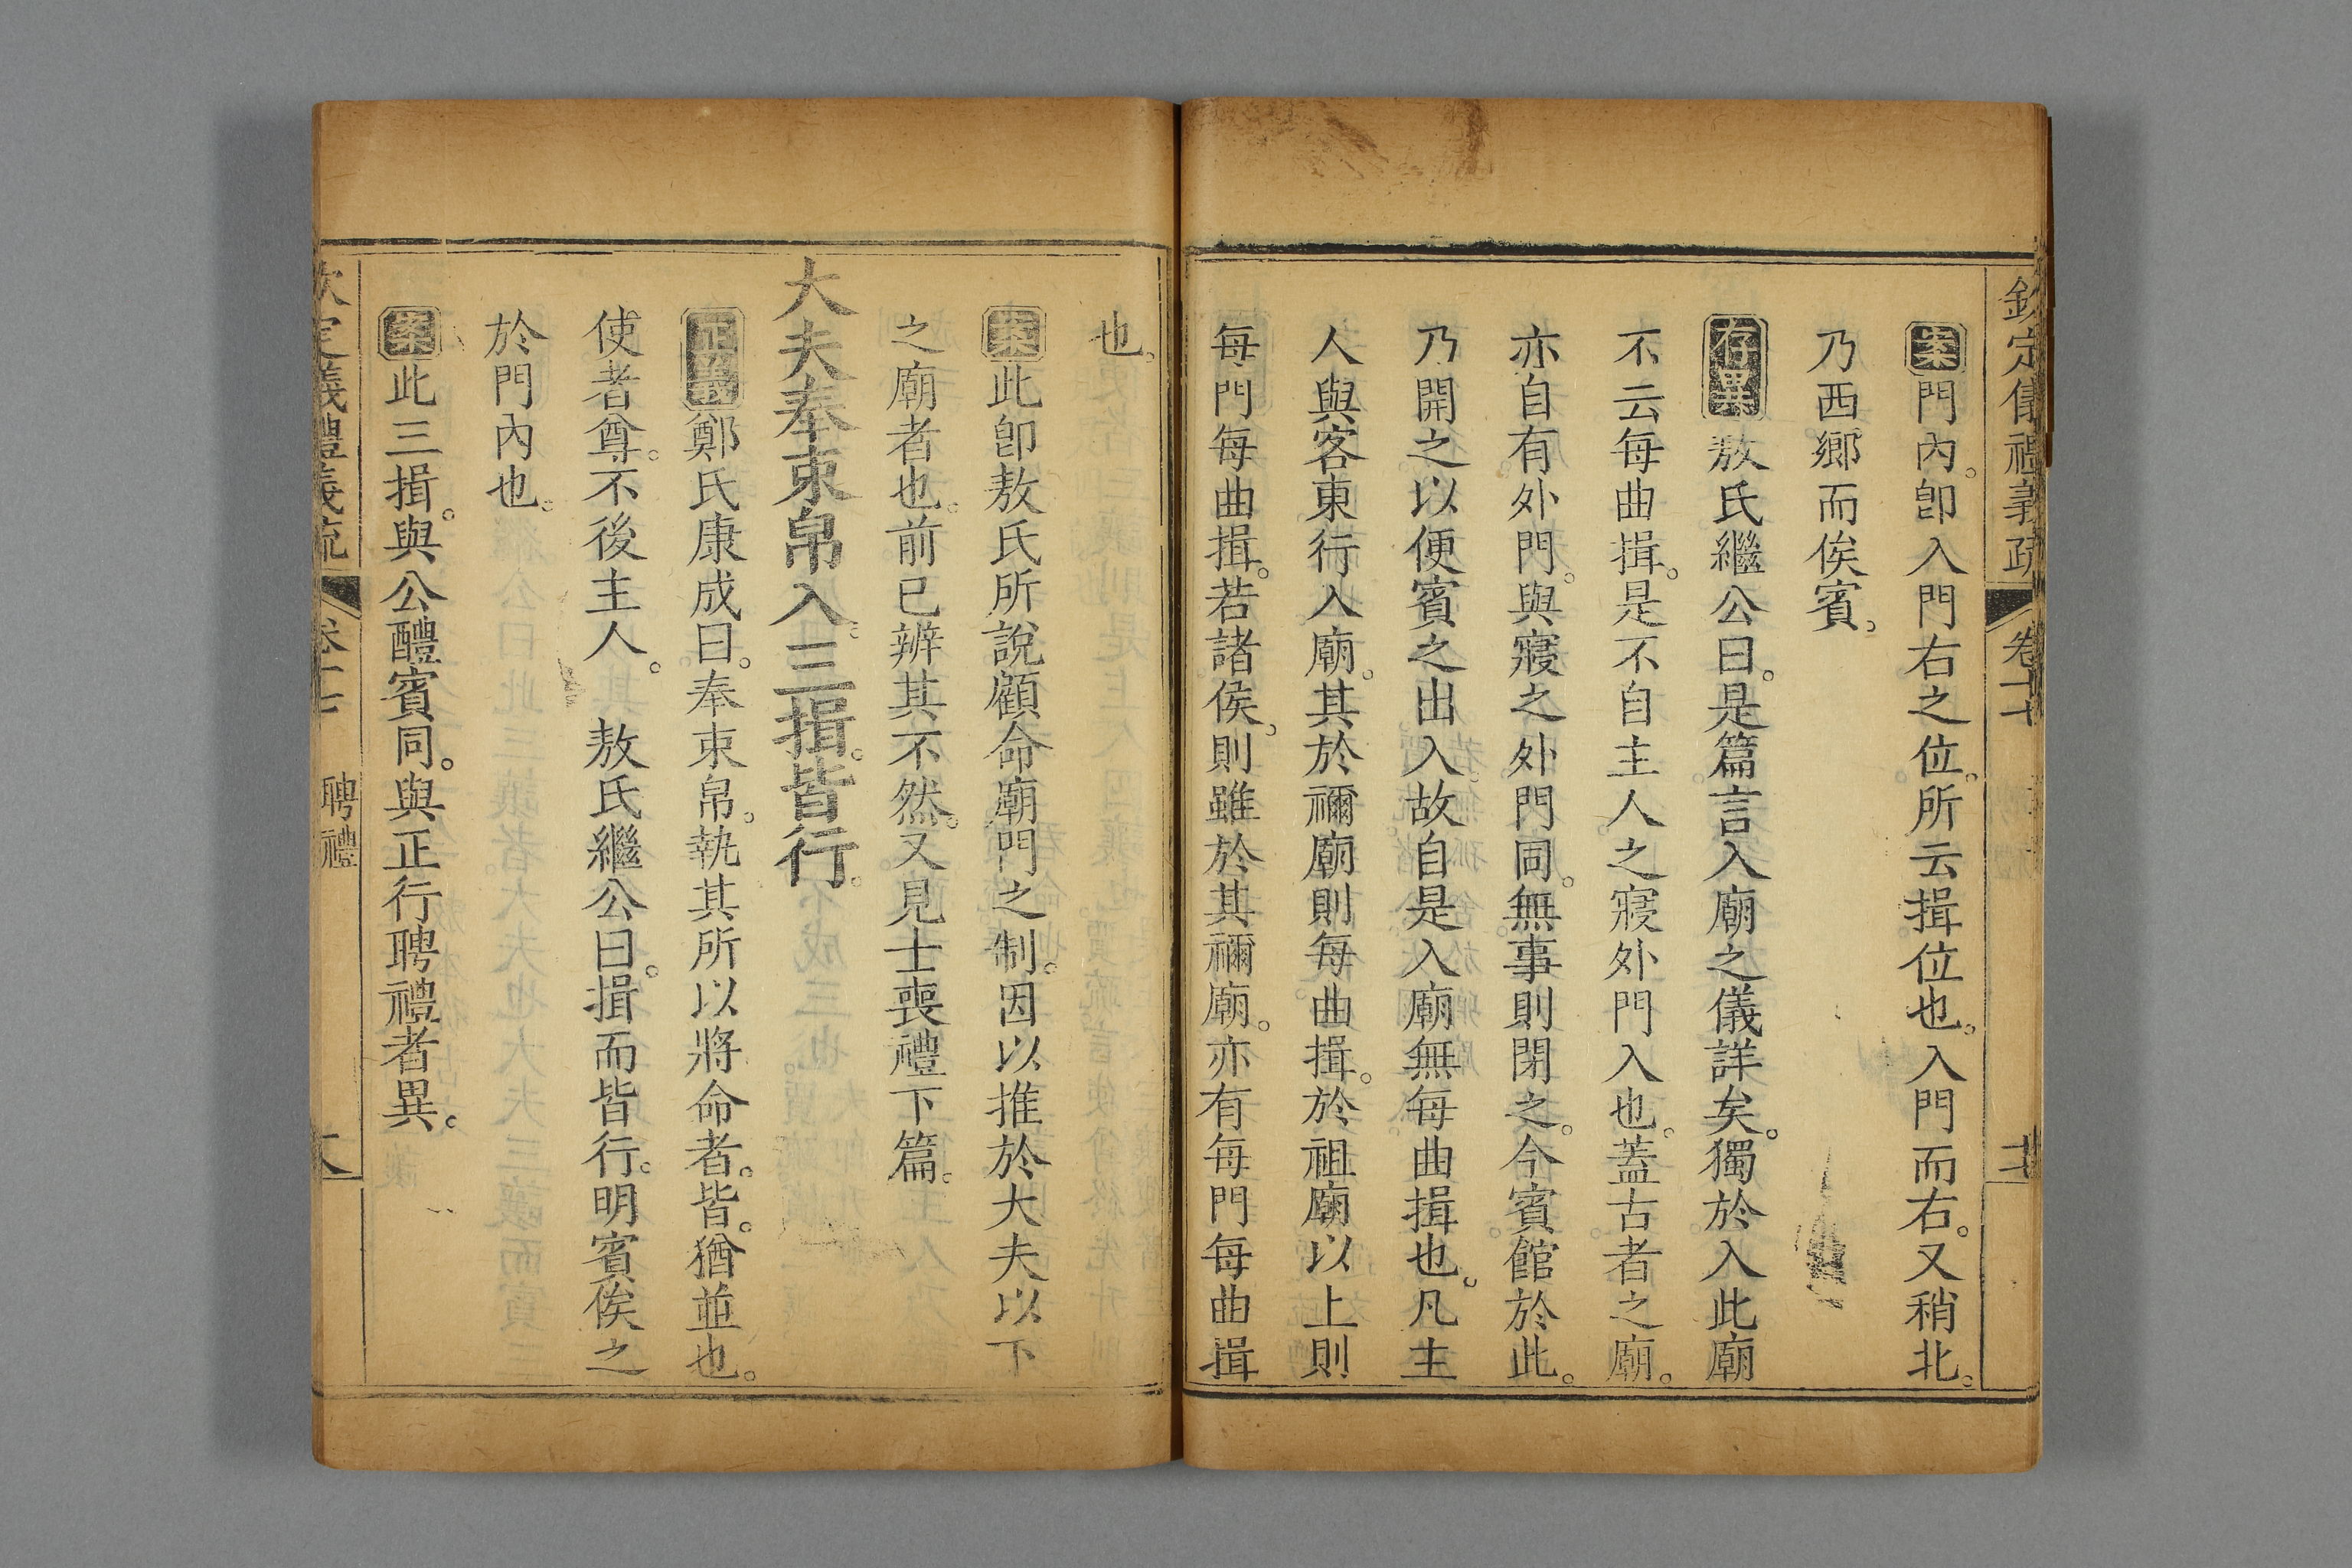 欽定儀禮義疏 卷十七
案門內。卽入門右之位。所云揖位也。入門而右。又稍北。
乃西鄉而俟賓。
存異敖氏繼公曰。是篇言入廟之儀詳矣。獨於入此廟
不云每曲揖。是不自主人之寢外門入也。蓋古者之廟。
亦自有外門。與寢之外門同。無事則閉之。今賓館於此。
乃開之以便賓之出入故自是入廟無每曲揖也。凡主
人與客東行入廟。其於禰廟則每曲揖。於祖廟以上則
每門每曲揖。若諸侯。則雖於其禰廟。亦有每門每曲揖
也。
案此卽敖氏所說顧命廟門之制。因以推於大夫以下
之廟者也。前已辨其不然。又見士喪禮下篇。
大夫奉束帛入。三揖。皆行。
正義鄭氏康成曰。奉束帛。執其所以將命者。皆。猶並也。
使者尊。不後主人。 敖氏繼公曰。揖而皆行。明賓俟之
於門內也。
案此三揖。與公醴賓同。與正行聘禮者異。
欽定儀禮義疏 卷十七 聘禮